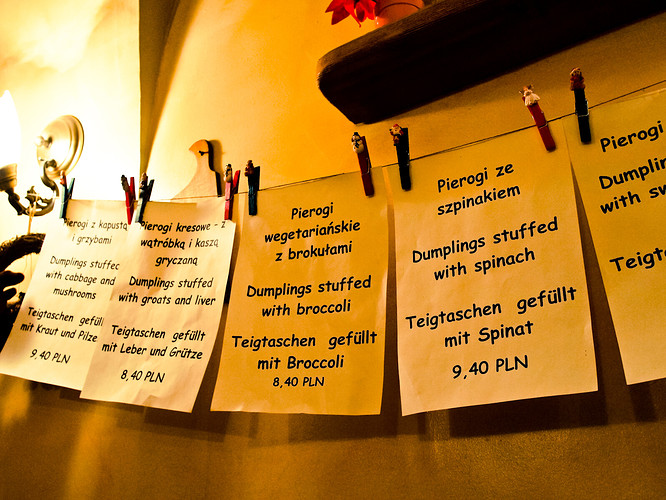 Pierogi z kapustą
i grzybami
Dumplings stuffed
with cabbage and
mushrooms
Teigtaschen
mit Kraut und Pilze
9,40 PLN
Pierogi kresowe - z
wątróbką i kaszą
gryczaną
Dumplings stuffed
with groats and liver
Teigtaschen gefüllt
mit Leber und Grütze
8,40 PLN
Pierogi
wegetariańskie
z brokułami
Dumplings stuffed
with broccoli
Teigtaschen gefüllt
mit Broccoli
8,40 PLN
Pierogi ze
szpinakiem
Dumplings stuffed
with spinach
Teigtaschen gefüllt
mit Spinat
9,40 PLN
Pierogi
with